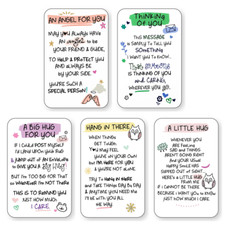 AN ANGEL FOR YOU
MAY YOU ALWAYS HAVE
AN angel TO BE
YOUR FRIEND & GUIDE,
TO HELP & PROTECT YOU
AND ALWAYS BE
BY YOUR SIDE.
YOU'RE SUCH A
SPECIAL PERSON!
THINKING
OF YOU
THIS MESSAGE
IS SIMPLY TO TELL YOU
SOMETHING
I WANT YOU TO KNOW,
THAT
IS THINKING OF YOU
AND CARING,
WHEREVER YOU GO.
A BIG HUG
FOR YOU
IF I COULD POST MYSELF
TO YOU I'D LOVE YOUR HUG
& JUMP OUT OF AN ENVELOPE
AND GIVE YOU
BUT I'M TOO BIG FOR THAT
SO WHENEVER I'M NOT THERE
THIS IS TO REMIND YOU
JUST HOW MUCH
I CARE.
HANG IN THERE
WHEN THINGS
GET TOUGH,
YOU MAY FEEL
YOU'RE ON YOUR OWN
BUT I'M HERE FOR YOU
AND YOU'RE NOT ALONE
TRY TO HANG IN THERE
AND TAKE THINGS DAY BY DAY,
& ANYTIME YOU NEED ME
I'LL BE WITH YOU
ALL THE WAY.
A LITTLE HUG
WHENEVER YOU
ARE FEELING
SAD AND THINGS
AREN'T GOING RIGHT
AND YOUR USUAL
HAPPY SMILE HAS
SLIPPED OUT OF SIGHT
HERE'S A LITTLE HUG
FROM ME
IF I CANNOT BE THERE
BECAUSE I WANT YOU TO KNOW
JUST HOW MUCH
I CARE.